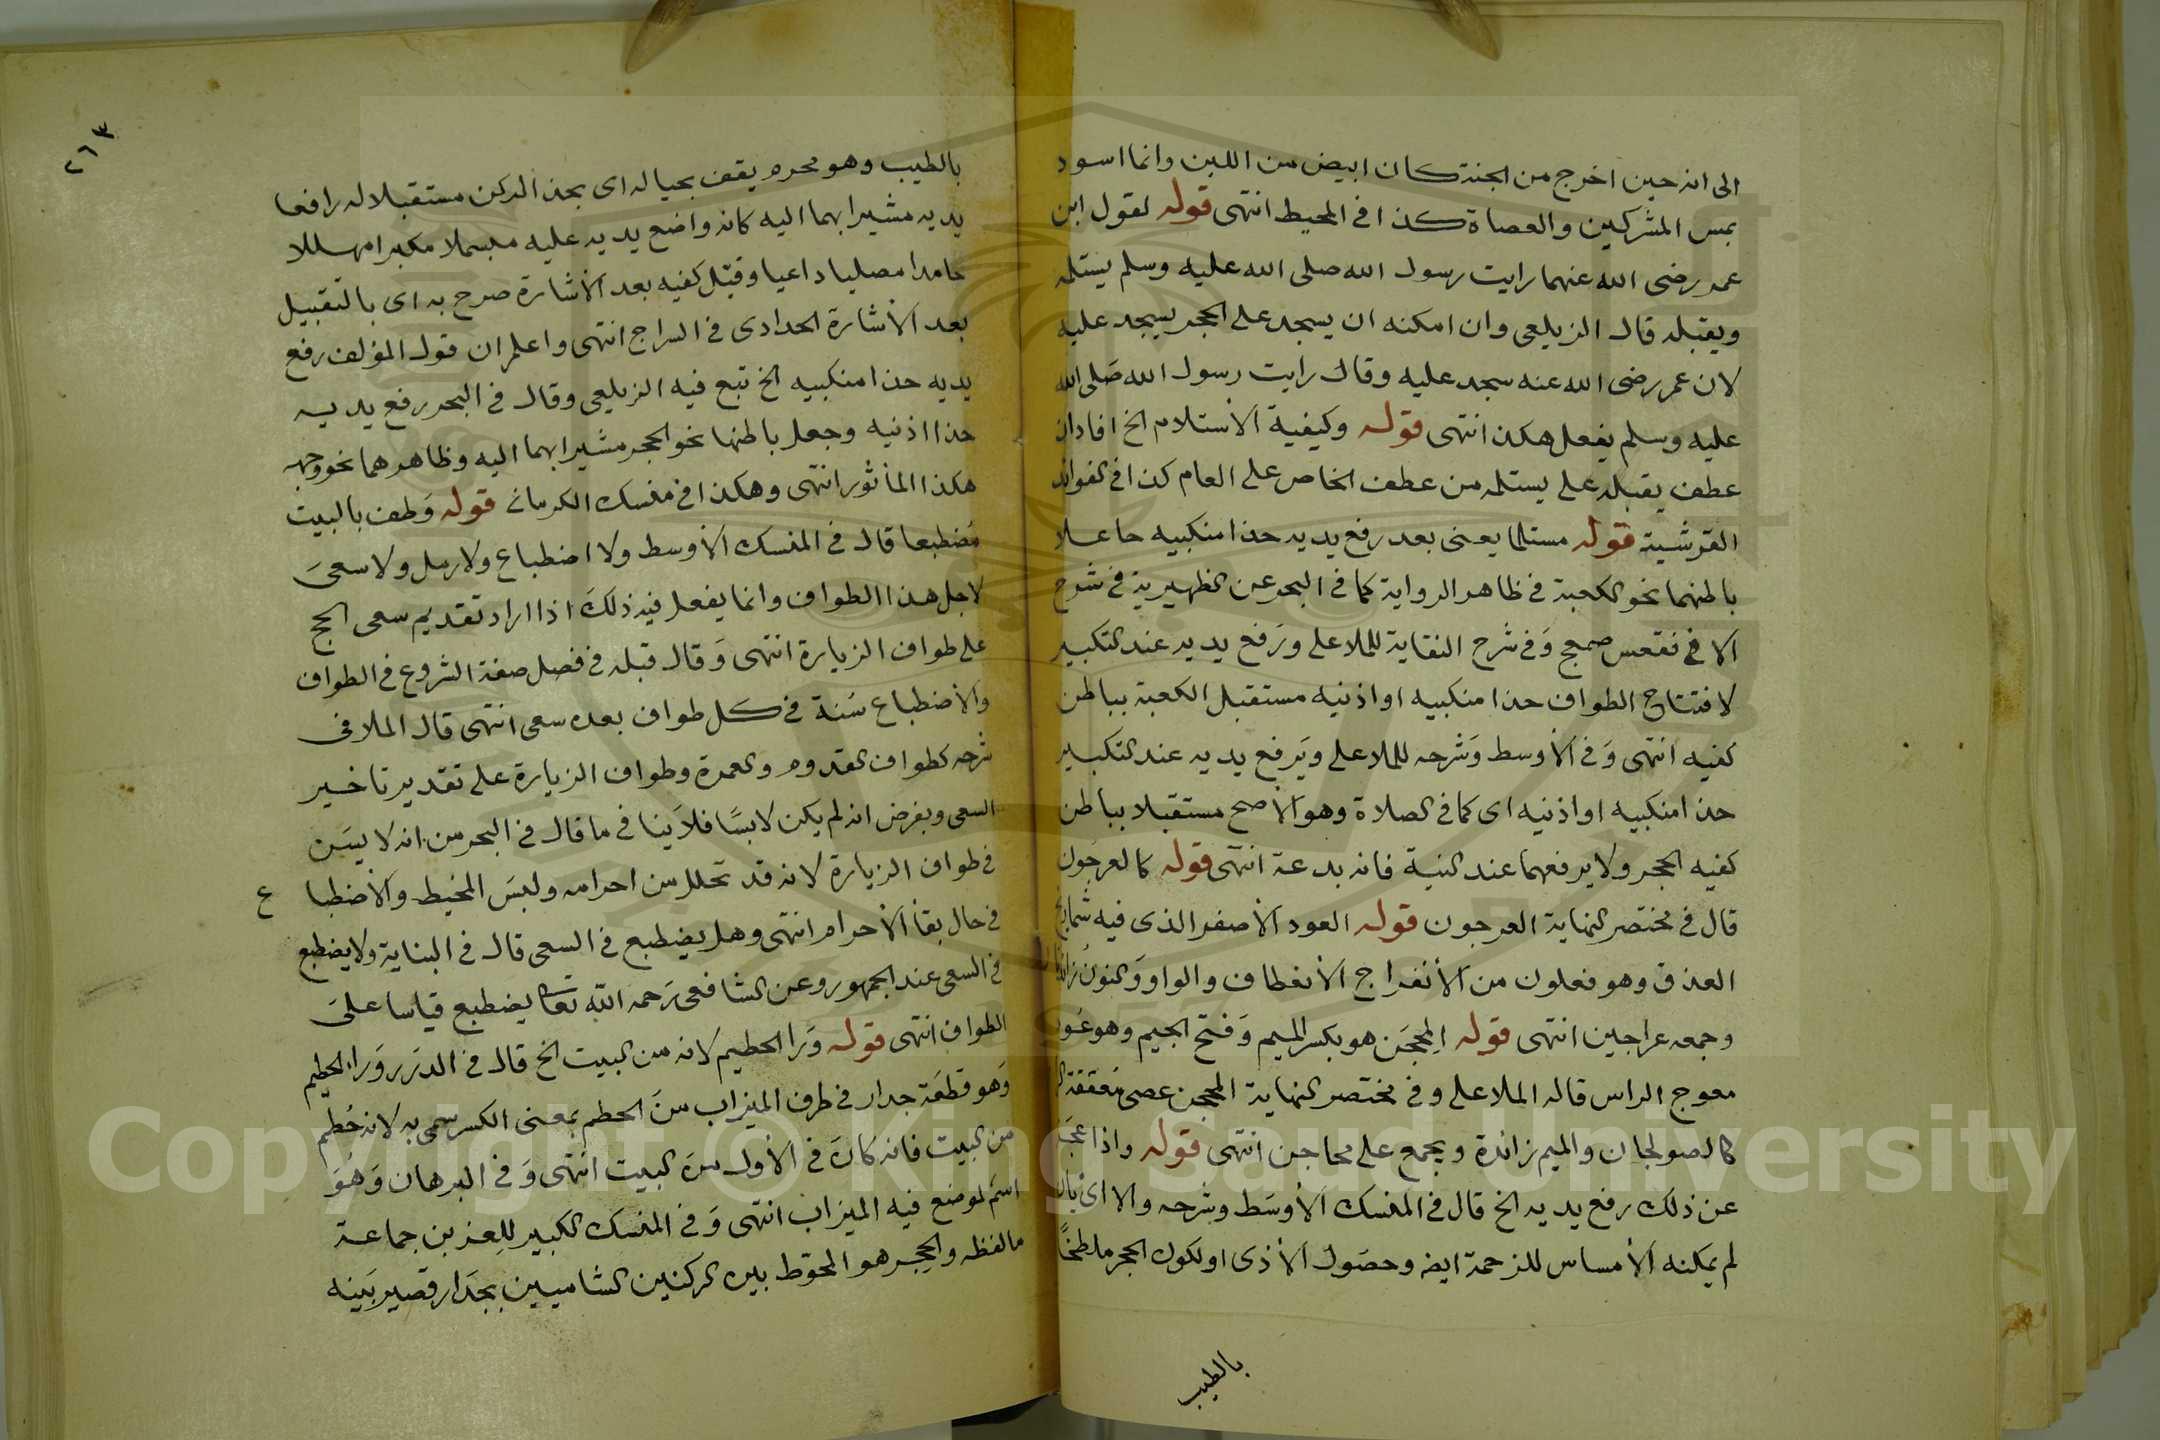 الى انه حين اخرج من الجنة كان ابيض من اللبن وانما اسود
بمس المشركين والعصاة كذا في المحيط انتهى قوله لقول ابن
عمر رضى الله عنهما رايت رسول الله صلى الله عليه وسلم يستلمه
ويقبله قال الزيلعى وان امكنه ان يسجد على الحجر يسجد عليه
لان عمر رضى الله عنه سجد عليه وقال رايت رسول الله صلى الله
عليه وسلم يفعل هكذا انتهى قوله وكيفية الأستلام الخ افاد ان
عطف يقبله على يستلمه من عطف الخاص على العام كذا في الفوائد
القرشية قوله مستلما يعنى بعد رفع يديه حذا منكبيه جاعلا
باطنهما نحو الكعبة في ظاهر الرواية كما في البحر عن الظهيرية في شرح
الا في فقعس صمعج وَفي شرح النقاية للملا على ورَفع يديه عند التكبير
لافتتاح الطواف حذا منكبيه او اذنيه مستقبل الكعبة بباطن
كفيه انتهى وَفي الأوسط وَشرحه للملا على ويَرفع يديه عند التكبير
حذا منكبيه او اذنيه اى كما في الصلاة وهو الأصح مستقبلا بباطن
كفيه الحجر ولا يرفعهما عند النية فانه بدعة انتهى قوله كالعرجون
قال في مختصر النهاية العرجون قوله العود الأصفر الذى فيه شماريخ
العذق وهو فعلون من الأنفراج الأنعطاف والواو وَالنون زائدتان
وجمعه عراجين انتهى قوله المِحجَن هو بكسر الميم وَفتح الجيم وهو عُود
معوج الراس قاله الملا على وفي مختصر النهاية المحجن عصى مُعقفة الراس
كالصولجان والميم زائدة ويجمع على محاجن انتهى قوله واذا عجَز
عن ذلك رفع يديه الخ قال في المنسك الأوسَط وشرحه والا اىْ بان
لم يمكنه الأمساس للزحمة ايضه وحصَول الأذى او لكون الحجر ملطخًا
بالطيب
٢٦٣
بالطيب وهو محرم يقف بحياله اى بحذ الركن مستقبلا له رافعا
يديه مشيرا بهما اليه كانه واضع يديه عليه مبسملا مكبرا مهللا
حامدا مصليا داعيا وقبّل كفيه بعد الأشارة صرح به اى بالتقبيل
بعد الأشارة الحدادى في السراج انتهى واعلم ان قول المؤلف رفع
يديه حذا منكبيه الخ تبع فيه الزيلعى وقال في البحر رفع يديه
حذا اذنيه وجعل باطنها نحو الحجر مشيرا بهما اليه وظاهرهما نحو وجهه
هكذا المأثور انتهى وهكذا في منسك الكرمانے قوله وَطف بالبيت
مُضطبعا قال في المنسك الأوسط ولا اضطباع ولا رمل ولا سعىَ
لاجل هذا الطواف وانما يفعل فيه ذلكَ اذا اراد تقديم سعى الحج
على طواف الزيارة انتهى وَقال قبله في فصل صفة الشروع في الطواف
والأضطباع سَنة في كل طواف بعده سعى انتهى قال الملا في
شرحه كطواف القدوم والعمرة وطواف الزيارة على تقدير تاخير
السعى وبفرض انه لم يكن لابسًا فلاَ ينا في ما قال في البحر من انه لا يسَن
في طواف الزيارة لانه قد تحلل من احرامه ولبسَ المخيط والأضطبا ع
في حال بقأ الأحرام انتهى وهل يضطبع في السعى قال في البناية ولا يضطبع
في السعى عند الجمهور وعن الشافعى رَحمه الله تعا يضطبع قياسا علىَ
الطواف انتهى قوله وَرا الحطيم لانه من البيت الخ قال في الدرَر وَرا الحطيم
وَهو قطعَة جدار في طرف الميزاب منَ الحطم بمعنى الكسر سمى به لانه حُطم
من البيت فانه كانَ في الأول منَ البيت انتهى وَفي البرهان وَهُوَ
اسمٌ لموضع فيه الميزاب انتهى وَفي المنسك الكبير للعز بن جماعة
ما لفظه والحِجر هو المحوّط بين الركنين الشاميين بجدَار قصير بَينه